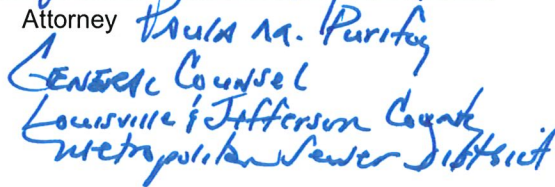 Attorney Paula M. Purifoy
General Counsel
Louisville & Jefferson County
Metropolitan Sewer District